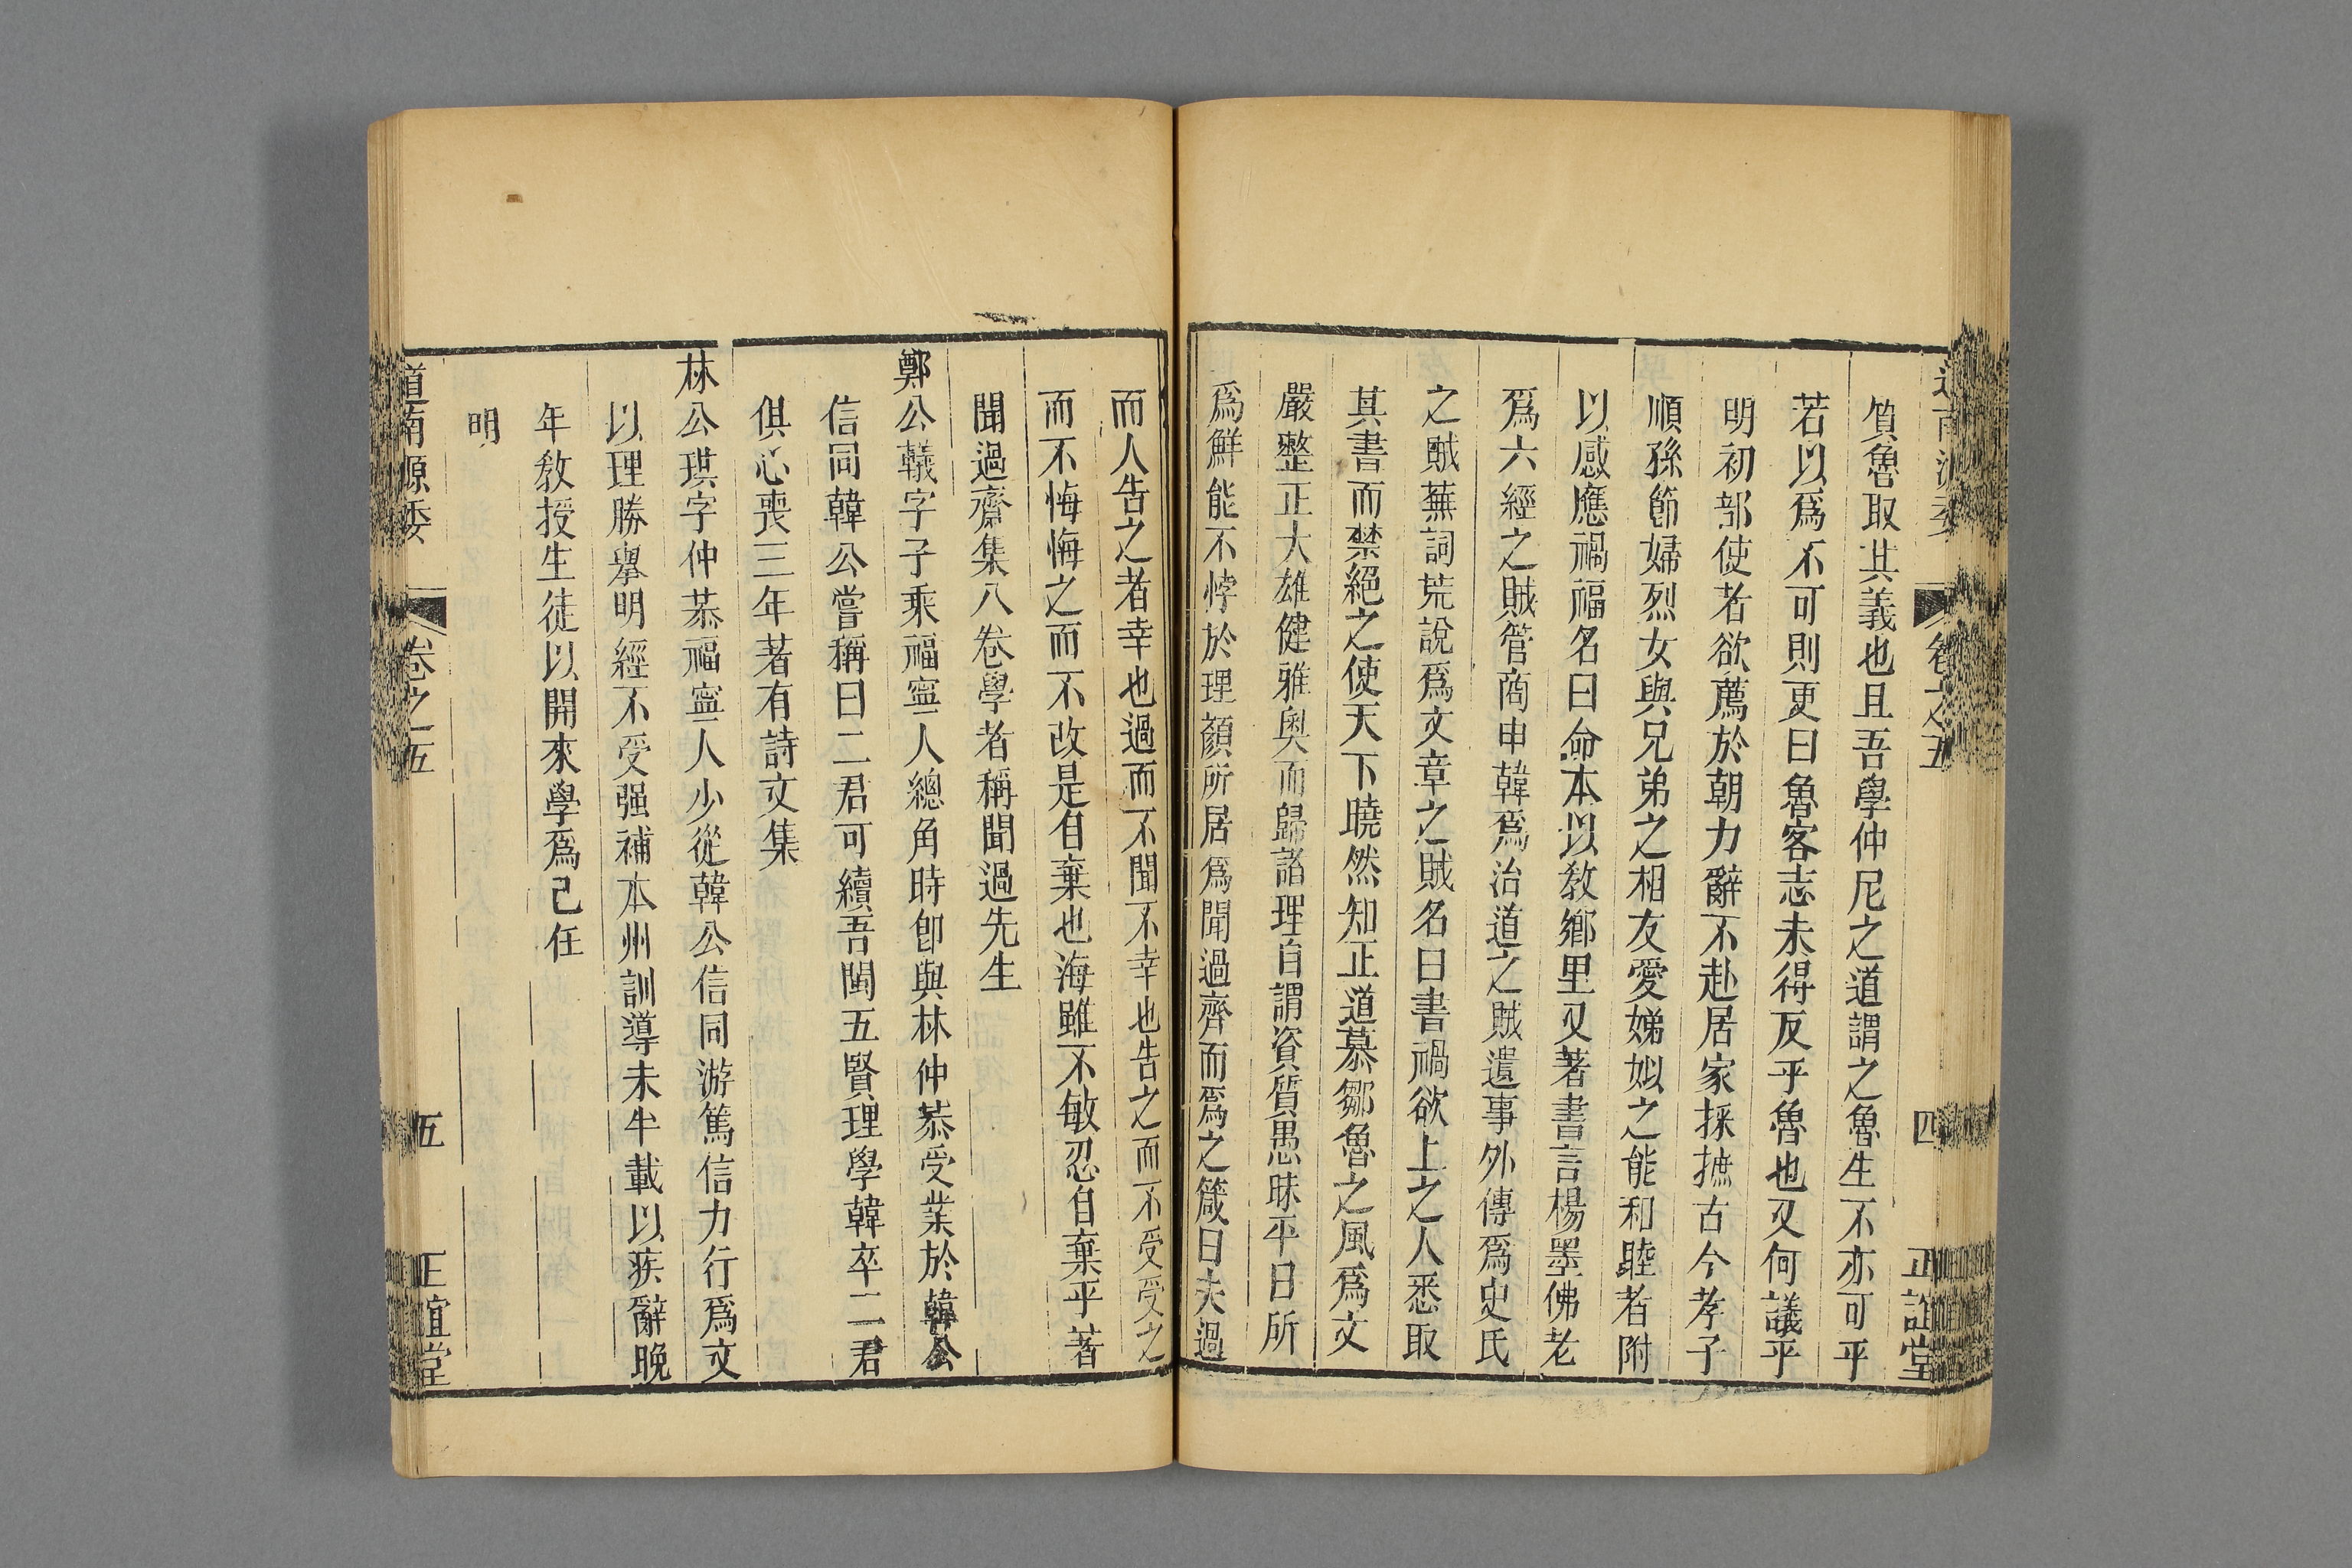 道南源委 卷之五 四 正誼堂
質魯取其義也且吾學仲尼之道謂之魯生不亦可乎
若以爲不可則更曰魯客志未得反乎魯也又何議乎
明初部使者欲薦於朝力辭不赴居家採摭古今孝子
順孫節婦烈女與兄弟之相友愛娣姒之能和睦者附
以感應禍福名曰命本以敎鄉里又著書言楊墨佛老
爲六經之賊管商申韓爲治道之賊遺事外傳爲史氏
之賊蕪詞荒說爲文章之賊名曰書禍欲上之人悉取
其書而禁絕之使天下曉然知正道慕鄒魯之風爲文
嚴整正大雄健雅奧而歸諸理自謂資質愚昧平日所
爲鮮能不悖於理顏所居爲聞過齊而爲之箴曰夫過
而人告之者幸也過而不聞不幸也告之而不受受之
而不悔悔之而不改是自棄也海雖不敏忍自棄乎著
聞過齋集八卷學者稱聞過先生
鄭公轙字子乘福寧人總角時卽與林仲恭受業於韓公
信同韓公嘗稱曰二君可續吾閩五賢理學韓卒二君
俱心喪三年著有詩文集
林公珙字仲恭福寧人少從韓公信同游篤信力行爲文
以理勝舉明經不受强補本州訓導未半載以疾辭晚
年敎授生徒以開來學爲己任
明
道南源委 卷之五 五 正誼堂